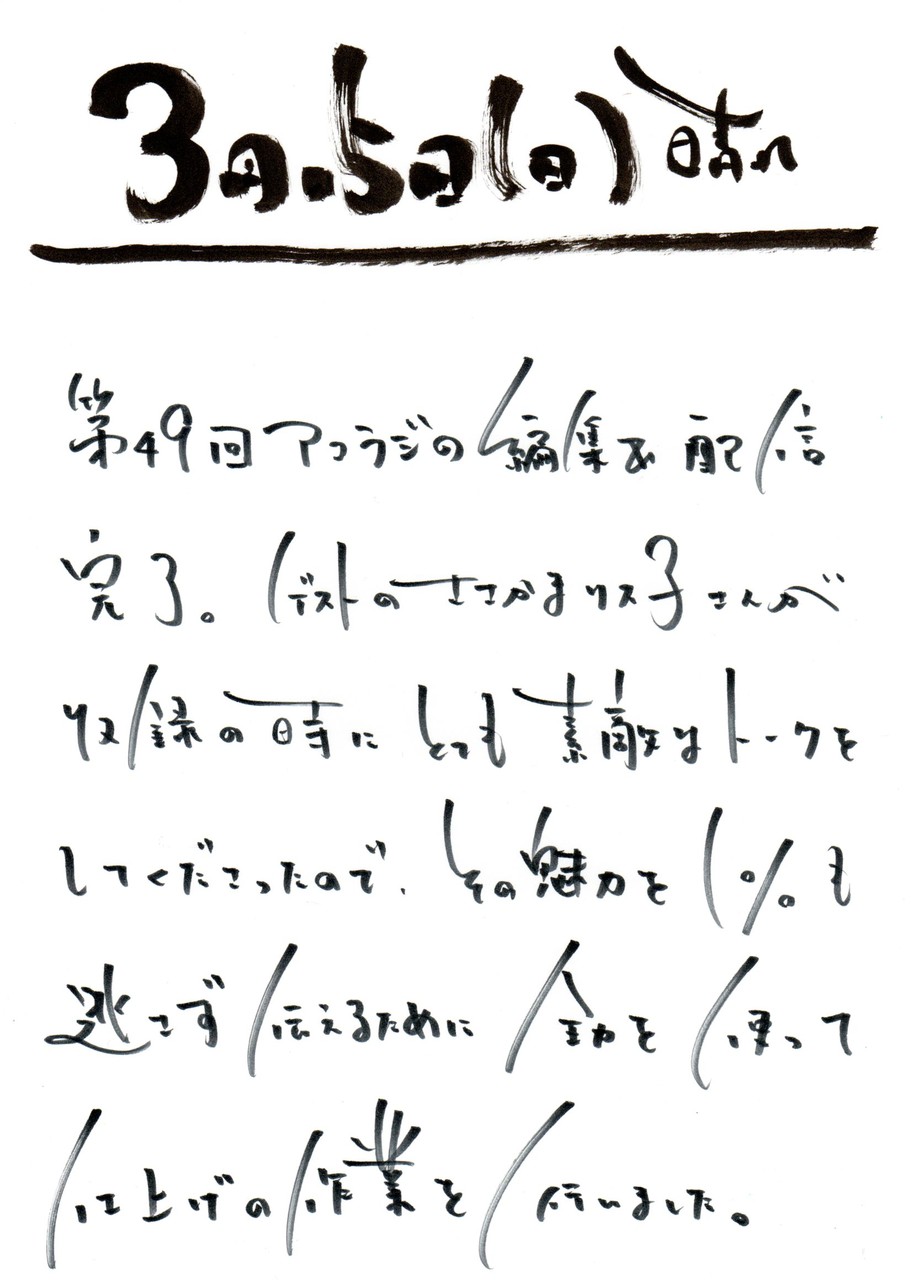 3月.5日(日) 晴れ
第49回アコラジの編集&配信
完了。ゲストのささかまリス子さんが
収録の時にとても素敵なトークを
してくださったので、その魅力を1%も
逃さず伝えるために全力を使って
仕上げの作業を行いました。